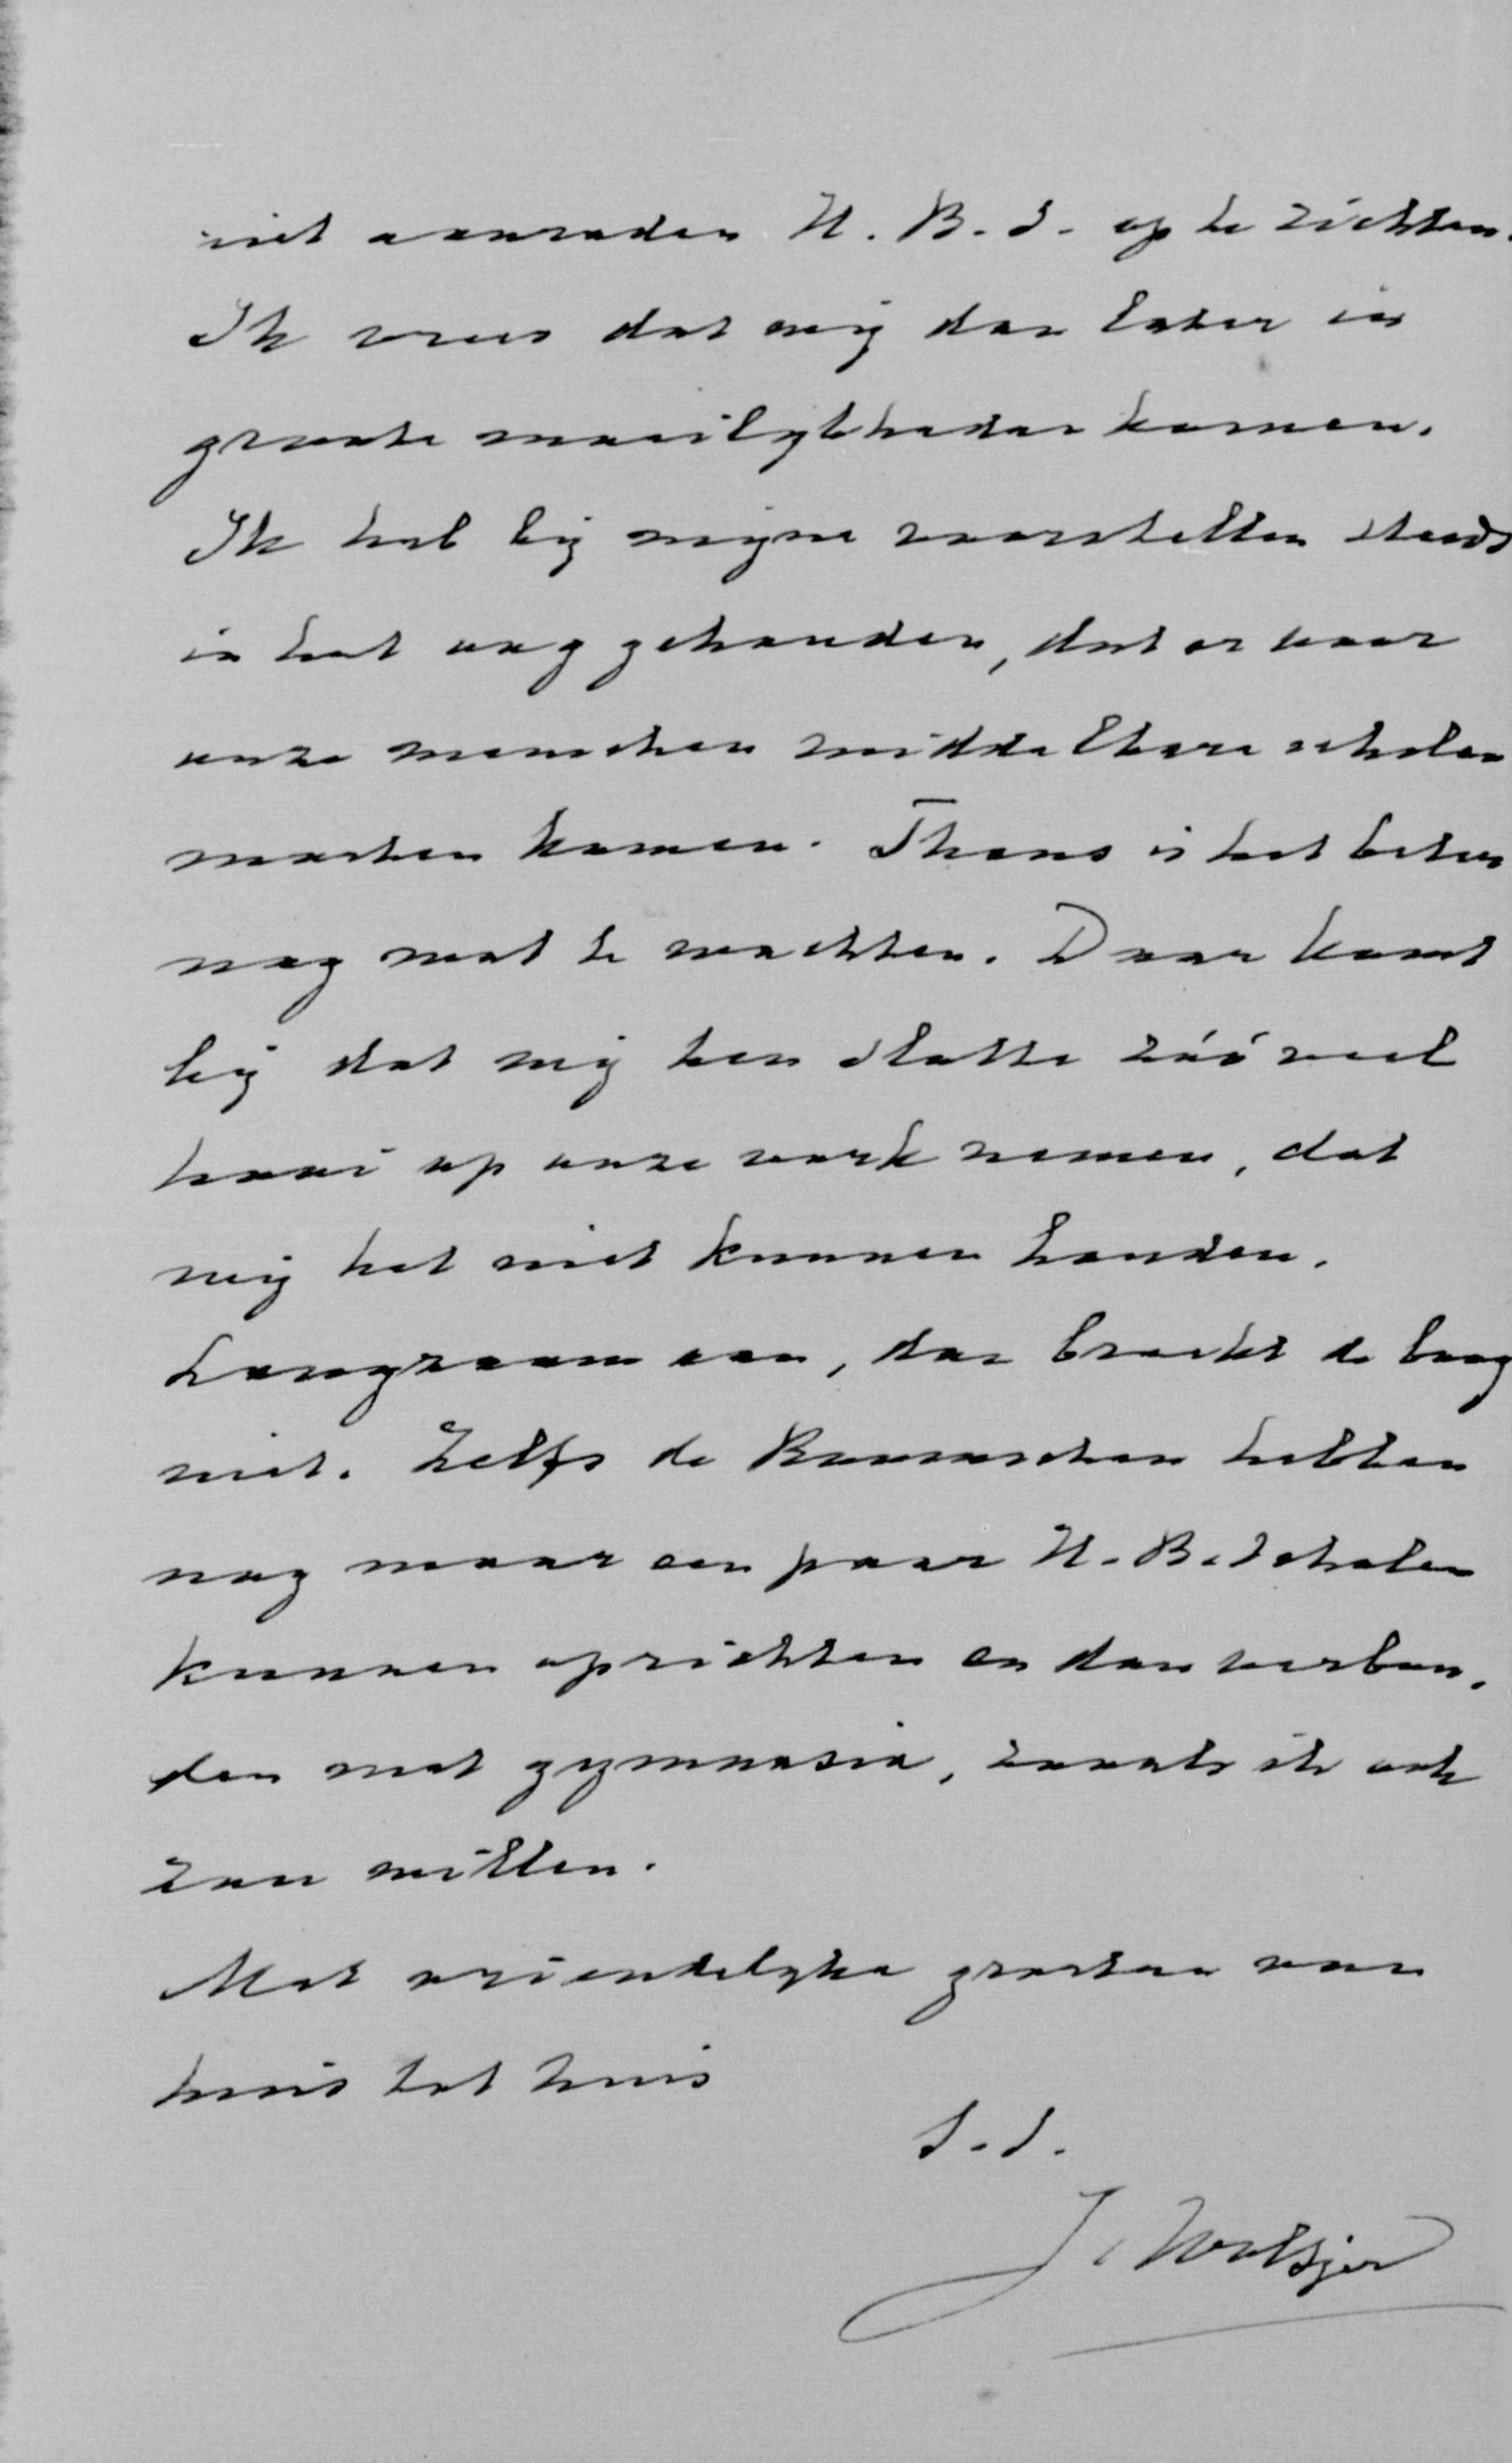 niet aanraden H. B. S. op te richten.
Ik vrees dat wij dan later in
groote moeilijkheden komen.
Ik heb bij mijne voorstellen steeds
in het oog gehouden, dat er voor
onze menschen middelbare scholen
moesten komen. Thans is het beter
nog wat te wachten. Daar komt
bij dat wij ten slotte zóó veel
hooi op onze vork nemen, dat
wij het niet kunnen houden.
Langzaam aan, dan breekt de boog
niet. Zelfs de Roomschen hebben
nog maar een paar H. B. Scholen
kunnen oprichten en dan verbon-
den met gymnasia, zooals ik ook
zou willen.
Met vriendelijke groeten van
huis tot huis
t. t.
J. Woltjer